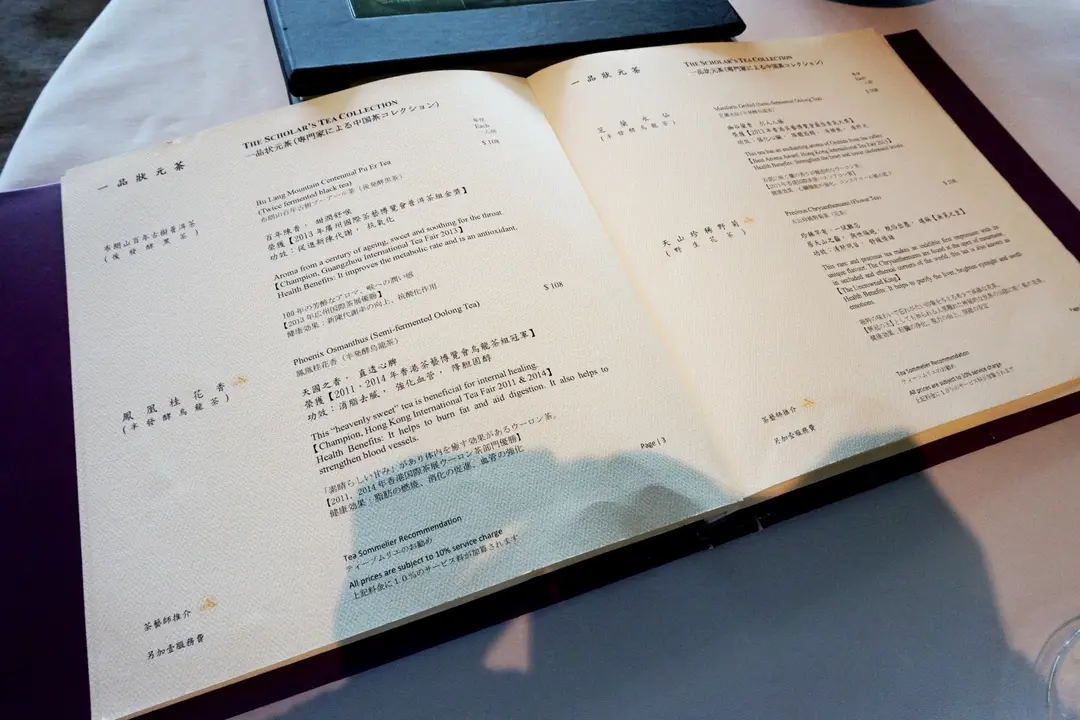 THE SCHOLAR'S TEA COLLECTION
一品狀元茶
一品状元茶(専門家による中国茶コレクション)
每位
Each
人様
$ 108
布朗山百年古樹普洱茶
(後發酵黑茶)
Bu Lang Mountain Centennial Pu Er Tea
(Twice fermented black tea)
布朗山百年古樹プーアール茶(後発酵黒茶)
百年陳香,甜潤舒喉
榮獲【2013年廣州國際茶藝博覽會普洱茶組金獎】
功效:促進新陳代謝,抗氧化
Aroma from a century of ageing, sweet and soothing for the throat
【Champion, Guangzhou international Tea Fair 2013】
Health Benefits: It improves the metabolic rate and is an antioxidant.
100年の芳醇なアロマ、喉への潤い感
【2013年広州国際茶展優勝】
健康効果:新陳代謝率の向上、抗酸化作用
鳳凰桂花香
(半發酵烏龍茶)
Phoenix Osmanthus (Semi-fermented Oolong Tea)
$ 108
鳳凰桂花香(半発酵烏龍茶)
天國之香,直透心脾
榮獲【2011,2014年香港茶藝博覽會烏龍茶組冠軍】
功效:消脂去膩,強化血管,降膽固醇
This "heavenly sweet" tea is beneficial for internal healing.
【Champion, Hong Kong International Tea Fair 2011 & 2014】
Health Benefits: It helps to burn fat and aid digestion. It also helps to
strengthen blood vessels.
「素晴らしい甘み」があり体内を癒す効果があるウーロン茶。
【2011、2014年香港国際茶展ウーロン茶部門優勝】
健康効果:脂肪の燃焼、消化の促進、血管の強化
Page 1 3
茶藝師推介
Tea Sommelier Recommendation
ティーソムリエのお勧め
另加壹服務費
All prices are subject to 10% service charge
上記料金に10%のサービス料が加算されます
THE SCHOLAR'S TEA COLLECTION
一品狀元茶
一品状元茶(専門家による中国茶コレクション)
每位
Each
人様
$ 108
芝蘭水仙
(半發酵烏龍茶)
Mandarin Orchid (Semi-fermented Oolong Tea)
This tea has an enchanting aroma of Orchids from the valley.
【Best Aroma Award, Hong Kong International Tea Fair 2013】
Health Benefits: Strengthen the heart and lower cholesterol levels
天山珍稀野菊
(野生花茶)
Precious Chrysanthemum (Flower Tea)
$ 108
This rare and precious tea makes an indelible first impression with its
unique flavour. The Chrysanthemums are found at the apex of mountains
in secluded and ethereal corners of the world, this tea is also known as
【The Uncrowned King】
Health Benefits: It helps to purify the liver, brighten eyesight and soothe
emotions.
茶藝師推介
Tea Sommelier Recommendation
ティーソムリエのお勧め
另加壹服務費
All prices are subject to 10% service charge
上記料金に10%のサービス料が加算されます